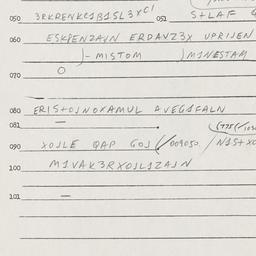 050 3RKRENKC1B1SL3XC! 051 S+LAF
060 ESKPENZAVN ERDAVZ3X UPRIJEN
)-MISTOM )M1NESTAM
070
080 ERIS+OJNOXAMUL AVEG1FALN
081
090 XOJLE QAP GOJ (009050.) N1S+XO
M1VAK3RXOJL1ZAJN
100
101